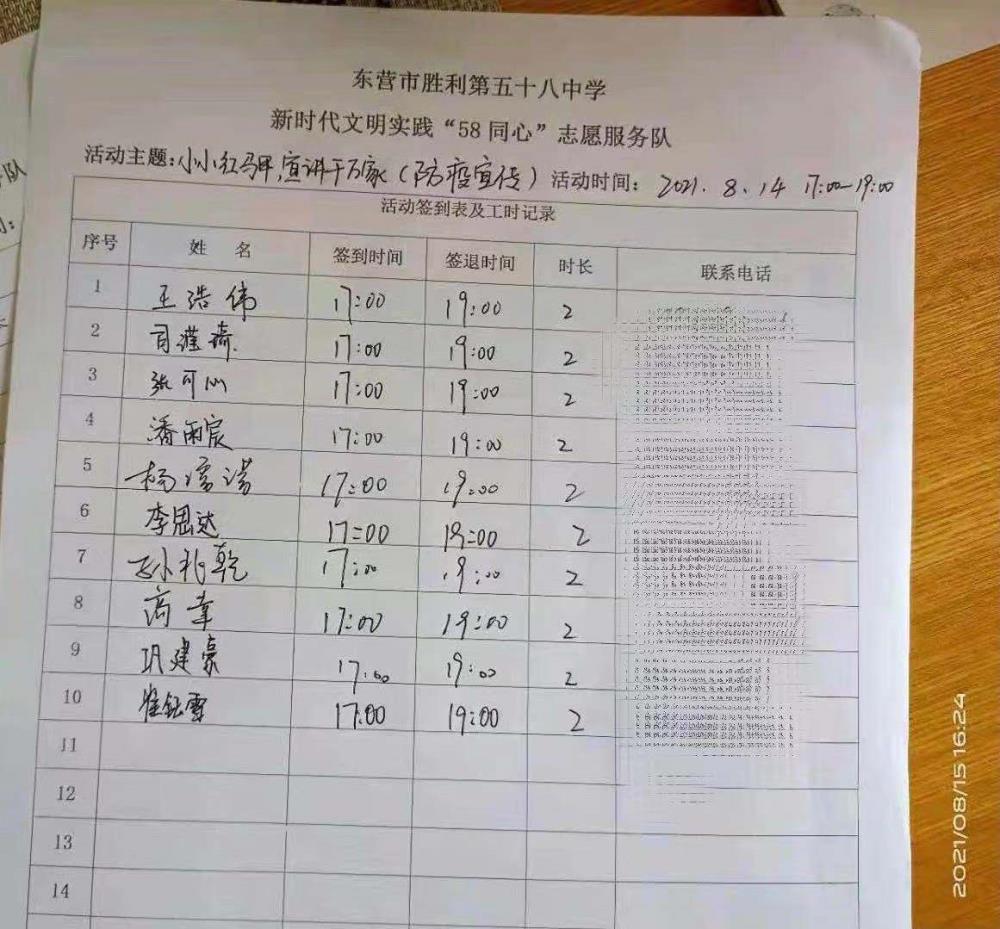 东营市胜利第五十八中学
新时代文明实践“58同心”志愿服务队
活动主题:小小红马甲,宣讲千万家(防疫宣传) 活动时间: 2021. 8. 14 17:00-19:00
活动签到表及工时记录
序号 姓 名 签到时间 签退时间 时长 联系电话
1 王浩伟 17:00 19:00 2
2 17:00 19:00 2
3 张可心 17:00 19:00 2
4 潘雨宸 17:00 19:00 2
5 杨濡诺 17:00 19:00 2
6 李思达 17:00 19:00 2
7 孙礼乾 17:00 19:00 2
8 高幸 17:00 19:00 2
9 巩建豪 17:00 19:00 2
10 崔钰雪 17:00 19:00 2
11
12
13
14
务队
间:
2021/08/15 16:24